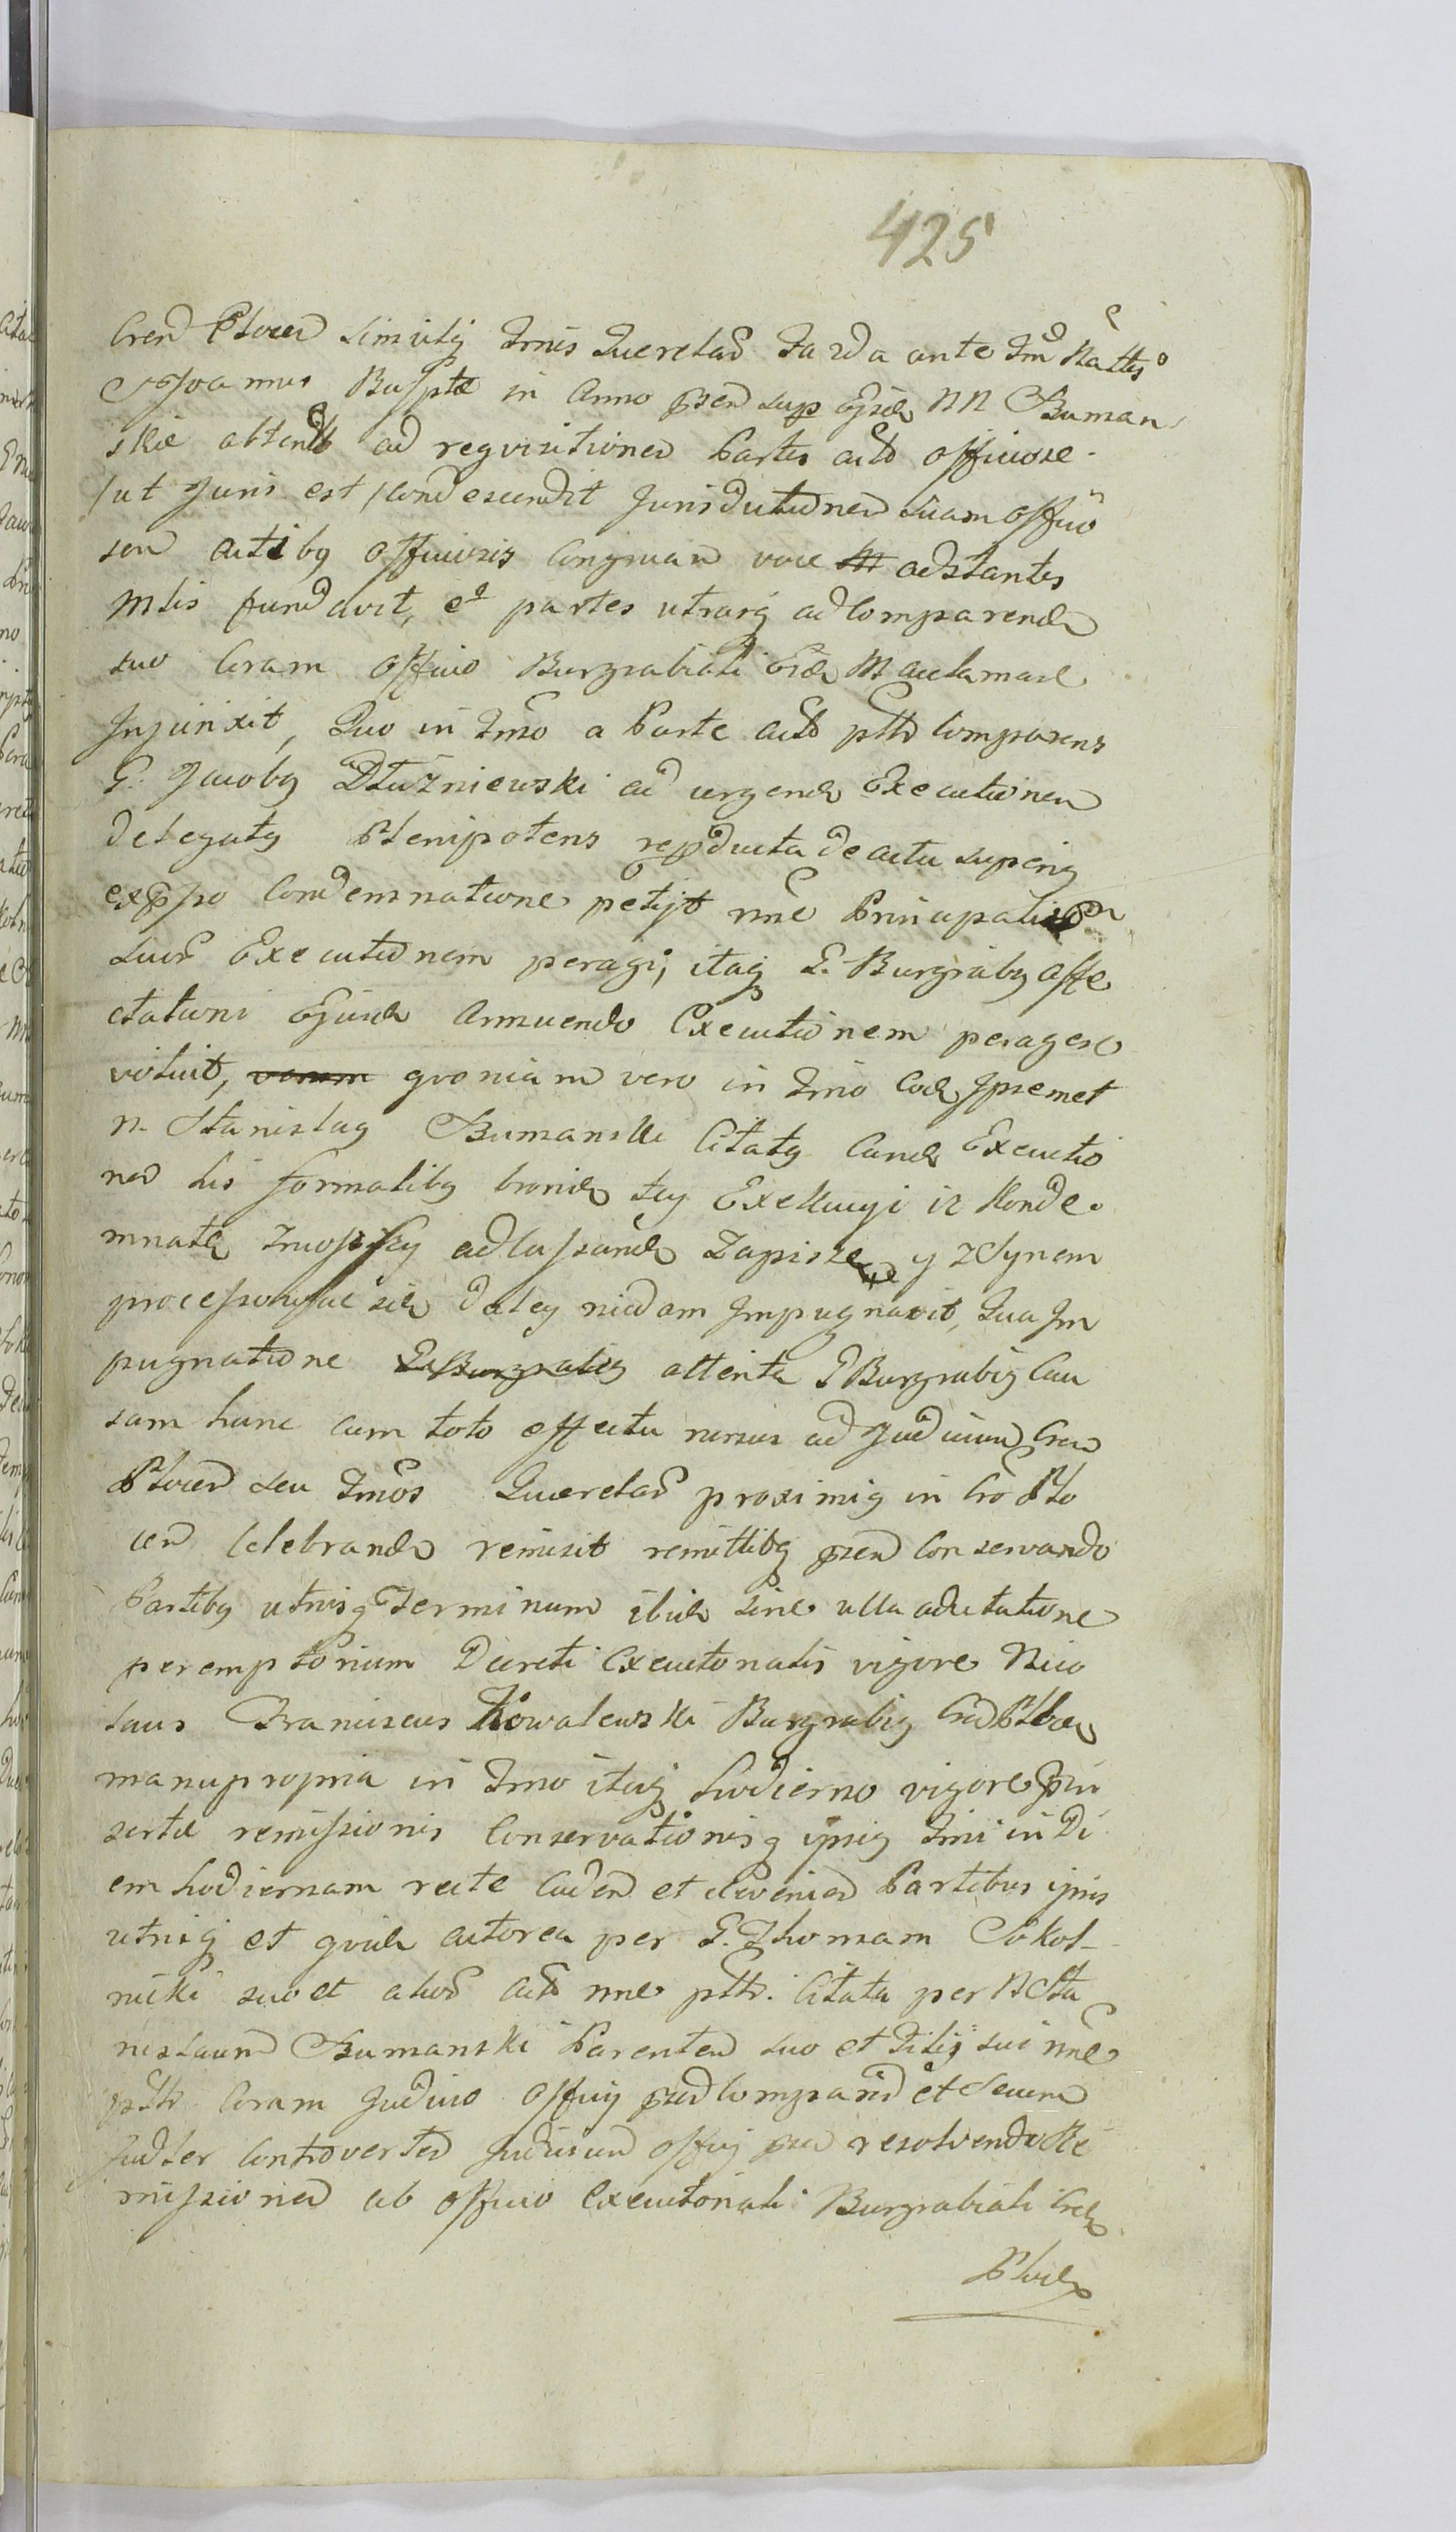 425
Cren Plocen similiq Tmis Querelar Farda ante Tm Nattis
S Joannis Baptae in Anno psen sup Ejsde NN Tluman
skie obtent ad reqvisitionem Partis acto officiose
/ut Juris est/ condescendit Jurisdictionem suam officio
sen actibq officiosis congruam voce adstantis
Mlis fundavit, et partes utrasq ad comparende
suo Coram officio Burgrabiali Ejsde M acclamare
Injunxit, Quo in Tmo a Parte acto ptta comparens
G. Jacobq Dłużniewski ad urgende Executionem
delegatq Plenipotens reproducta de actu superiq
expsso Condemnatione petijt nne Principalium
suor Executionem peragi, itaq G. Burgrabq affe
ctationi Ejusde Annuendo Executionem peragere
voluit, verum qvoniam vero in Tmo eode Ipsemet
N. Stanislaq Tlumanski Citatq eande Executio
nem his formalibq bronie tey Exekucyi iz Konde
mnatę zniosszy adcassande Zapiszę y z Synem
processowac się daley niedam Impugnavit, Qua Im
pugnatione G Burgrabiq attenta G Burgrabiq Cau
sam hanc cum toto effectu rursus ad Judicium Cren
Plocen seu Tmos Querelar proximiq in Cro Plo
cen celebrande remisit remittitq psen conservando
Partibq utrisq Terminum ibide sine ulla adcitatione
peremptorium Decreti Executorialis vigore Nico
laus Franciscus Kowalewski Burgrabiq Cred Ploce
manu propria in Tmo itaq hodierno vigore prein
sertae remissionis Conservationisq ipsiq Tmi in Di
em hodiernam recte caden et evenien Partibus ipsis
utrisq et qvide actorea per G. Thomam Sokol-
nicki suo et alior acto nne ptto. Citata per N Sta
nislaum Tlumanski Parentem suo et Filij sui nne
ptto Coram Judicio officij pred comparen et secum
Judter controverten Judicium officij pred resolvendo Re
missionem ab officio Executoriali Burgrabiali Cre
Ploce